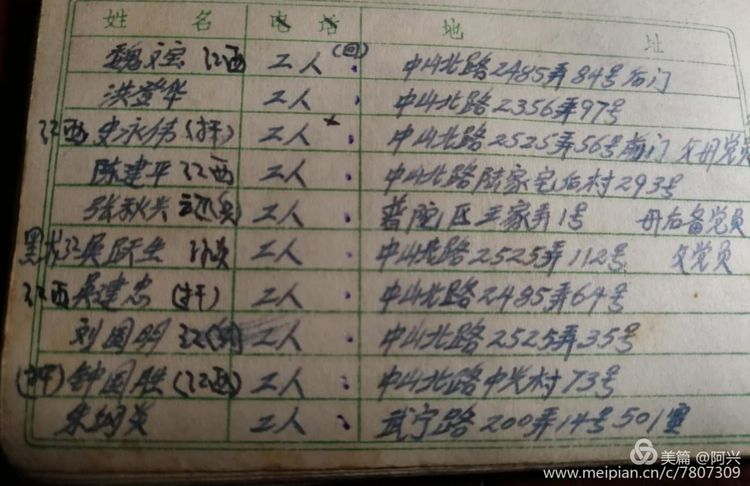 姓名 电话 地址
魏文宝 江西 工人(回) 中山北路2485弄84号后门
洪登华 工人 中山北路2356弄97号
江西 史永伟(扞) 工人 中山北路2525弄56号前门 父母党员
陈建平 江西 工人 中山北路陆家宅后村293号
张秋兴 工人 普陀区王家弄1号 母后备党员
黑龙江 吴跃生 工人 中山北路2525弄112号 父党员
江西 吴建忠(扞) 工人 中山北路2485弄64号
刘国明 工人 中山北路2525弄35号
钟国胜(江西) 工人 中山北路中兴村73号
朱 工人 武宁路200弄14号501室
美篇 @阿兴
www.meipian.cn/c/7807309